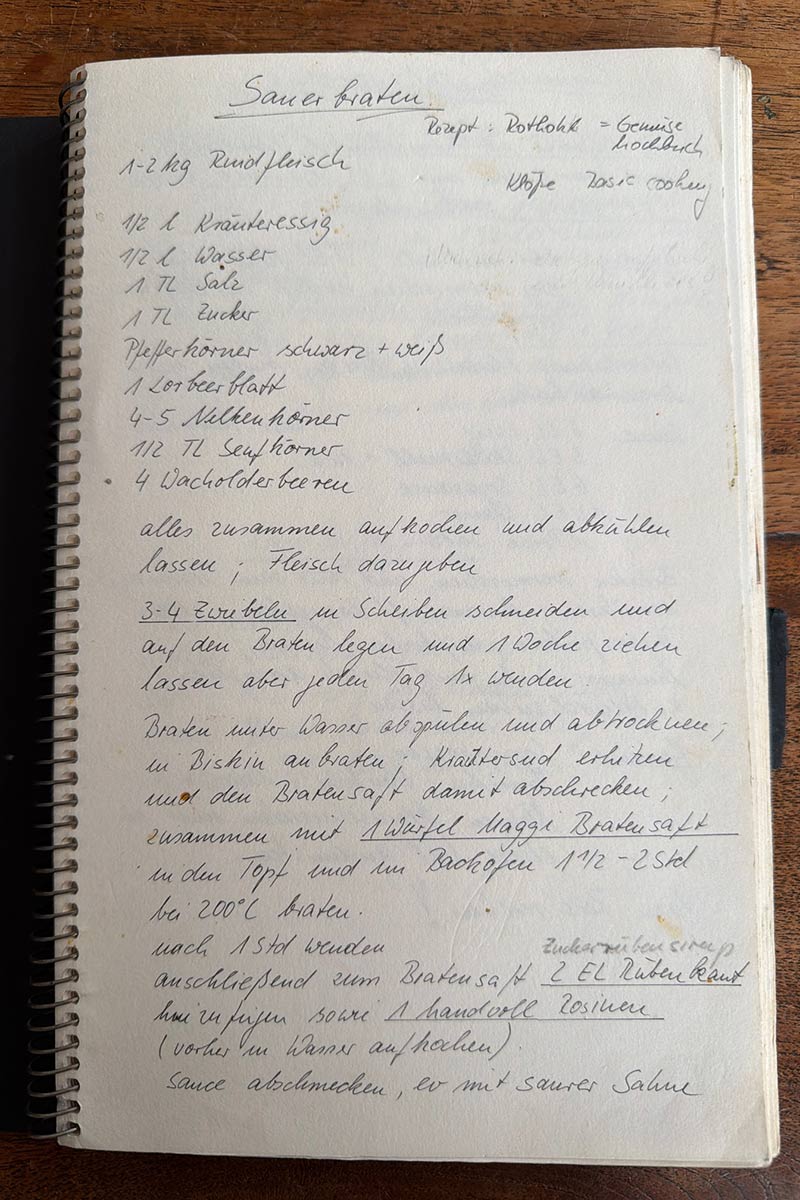 Sauerbraten
Rezept : Rothohl = Gemüse
kochbuch
Klöße basic cooking
1-2 kg Rindfleisch
1/2 l Kräuteressig
1/2 l Wasser
1 TL Salz
1 TL Zucker
Pfefferkörner schwarz + weiß
1 Lorbeerblatt
4-5 Nelkenkörner
1/2 TL Senfkörner
4 Wacholderbeeren
alles zusammen aufkochen und abkühlen
lassen ; Fleisch dazugeben
3-4 Zwiebeln in Scheiben schneiden und
auf den Braten legen und 1 Woche ziehen
lassen aber jeden Tag 1x wenden.
Braten unter Wasser abspülen und abtrocknen ;
in Biskin anbraten ; Kräutersud erhitzen
und den Bratensaft damit abschrecken ;
zusammen mit 1 Würfel Maggi Bratensaft
in den Topf und im Backofen 1 1/2 - 2 Std
bei 200°C braten.
nach 1 Std wenden
Zuckerrübensirup
anschließend zum Bratensaft 2 EL Rübenkraut
hinzufügen sowie 1 handvoll Rosinen
(vorher in Wasser aufkochen).
Sauce abschmecken, ev mit saurer Sahne